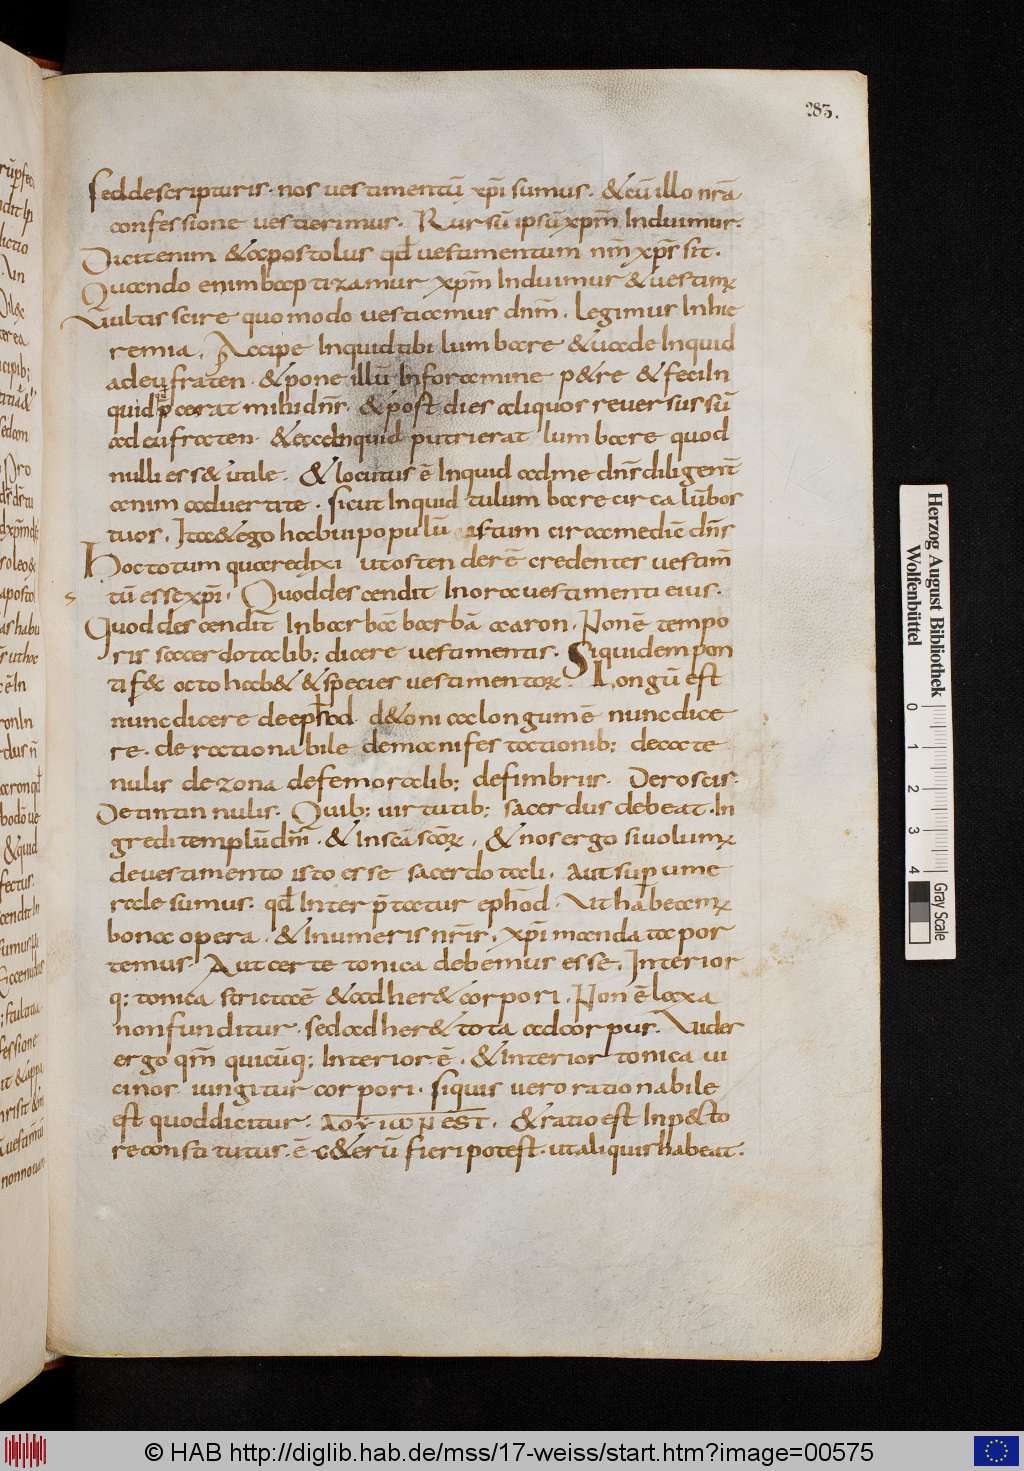 283.
sed descripturis · nos vestimentū xp̄i sumus · & cū illo nr̄a
confessione vestierimus · Rursū ipsū xpm̄ Induimur ·
Dicit enim & apostolus qd̄ vestimentum nr̄m xpr̄ sit ·
Quando enim baptizamur xpm̄ Induimur & vestim̄
Vultis scire quomodo vesticemur dnm̄ · Legimus Inhie
remia · Accipe Inquid tibi lumbare & uade Inquid
ad eufraten · & pone illū Inforamine p&re & feci In
quid p̄cerat mihi dnr̄ · & post dies aliquos reuersus sū
ad eufraten · & ecce Inquid putrierat lumbare quod
nulli ess& utile · & locutus ē Inquid ad me dnr̄ diligent̄
animaduertite · sicut Inquid tulum bare circa lūbos
tuos · Ita & ego habui populū istum circa me dic̄ dnr̄
Hoc totum quare dixi ut ostenderē credenter vestim̄
tū esse xpi · Quod descendit In ora vestimenti eius ·
Quod descendit̄ In barbā barbā aaron · Non ē tempo
ris sacerdotalib; dicere vestimentis · Siquidem pon
tif& octo hab& & species vestimentor̄ · Longū est
nunc dicere de ephod d&oni ac longum ē nunc dice
re · de rationabile de manifestationib; de cate
nulis de zona de femoralib; de fimbriis · De rosis ·
De tintinnulis · Quib; uirtutib; sacerdus debeat · In
gredi templū dnī · & In sc̄a scōr̄ · & nos ergo si volum̄
de vestimento isto esse sacerdotali · aut sup̄ ume
rale sumus : qd̄ Inter p̄tatur ephōd · Vt habeam̄
bona opera · & In umeris nr̄is · xp̄i mandata por
temus · Aut certe tonica debemus esse · Interior
q; tonica stricta ē & ad her& corpori · Non ē laxa
non funditur · sed ad her& tota ad corpus · Vider
ergo qm̄ quicūq; Interior ē · & Interior tonica ui
cinos iungitur corpori · siquis uero rationabile
est quod dicitur · ΛΟΓΙΟΝ EST · & ratio est In p&cto
re consti tutus · ē c&erū fieri potest · ut aliquis habeat ·
Herzog August Bibliothek
Wolfenbüttel
0 1 2 3 4
Gray Scale
© HAB http://diglib.hab.de/mss/17-weiss/start.htm?image=00575